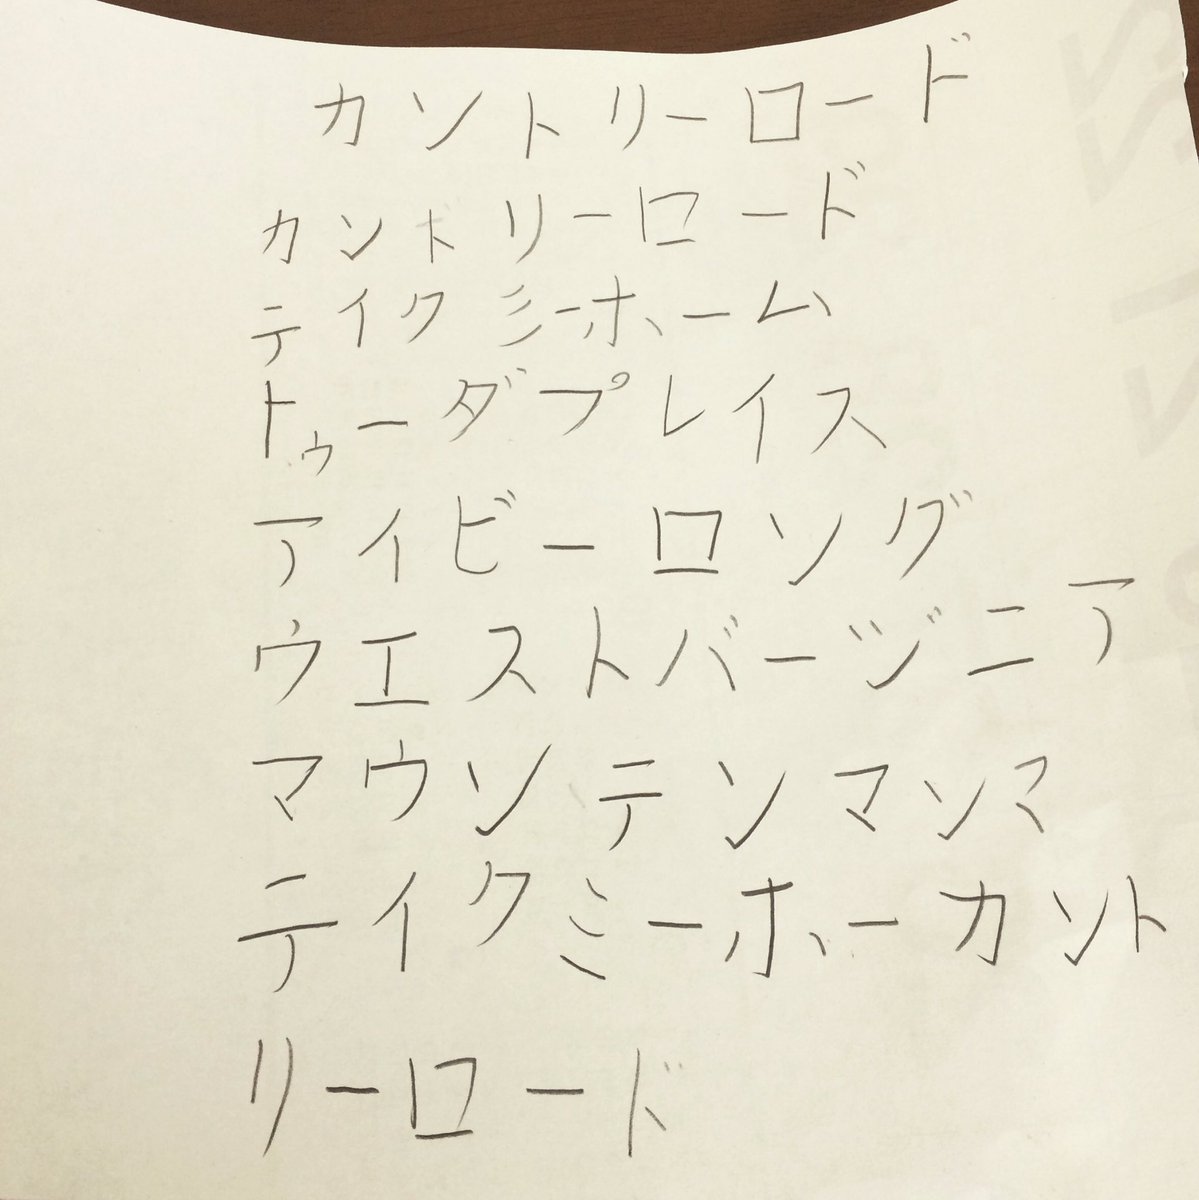 カントリーロード
カントリーロード
テイクミーホーム
トゥーダプレイス
アイビーロング
ウエストバージニア
マウンテンマンマ
テイクミーホーカント
リーロード